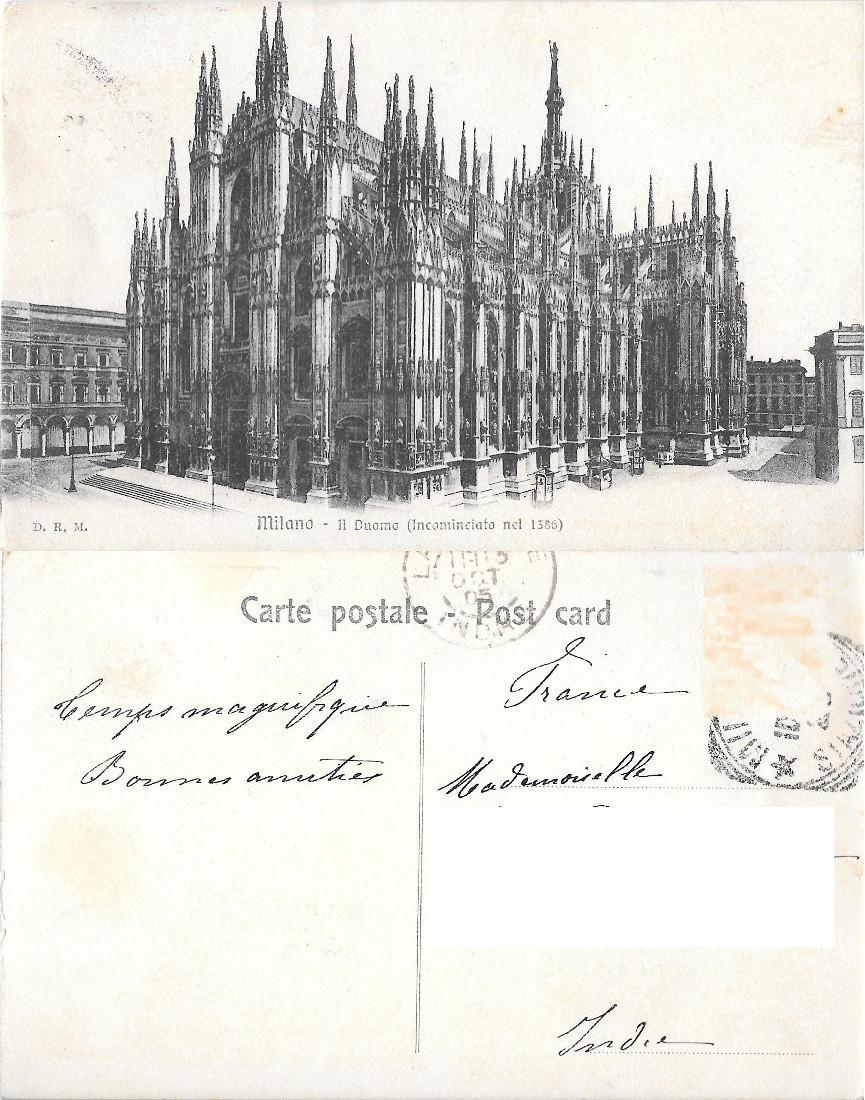 D. R. M.
Milano - Il Duomo (Incominciato nel 1386)
Carte postale - Post card
13
OCT
05
France
Temps magnifique
Bonnes amitiés
Mademoiselle
Indre